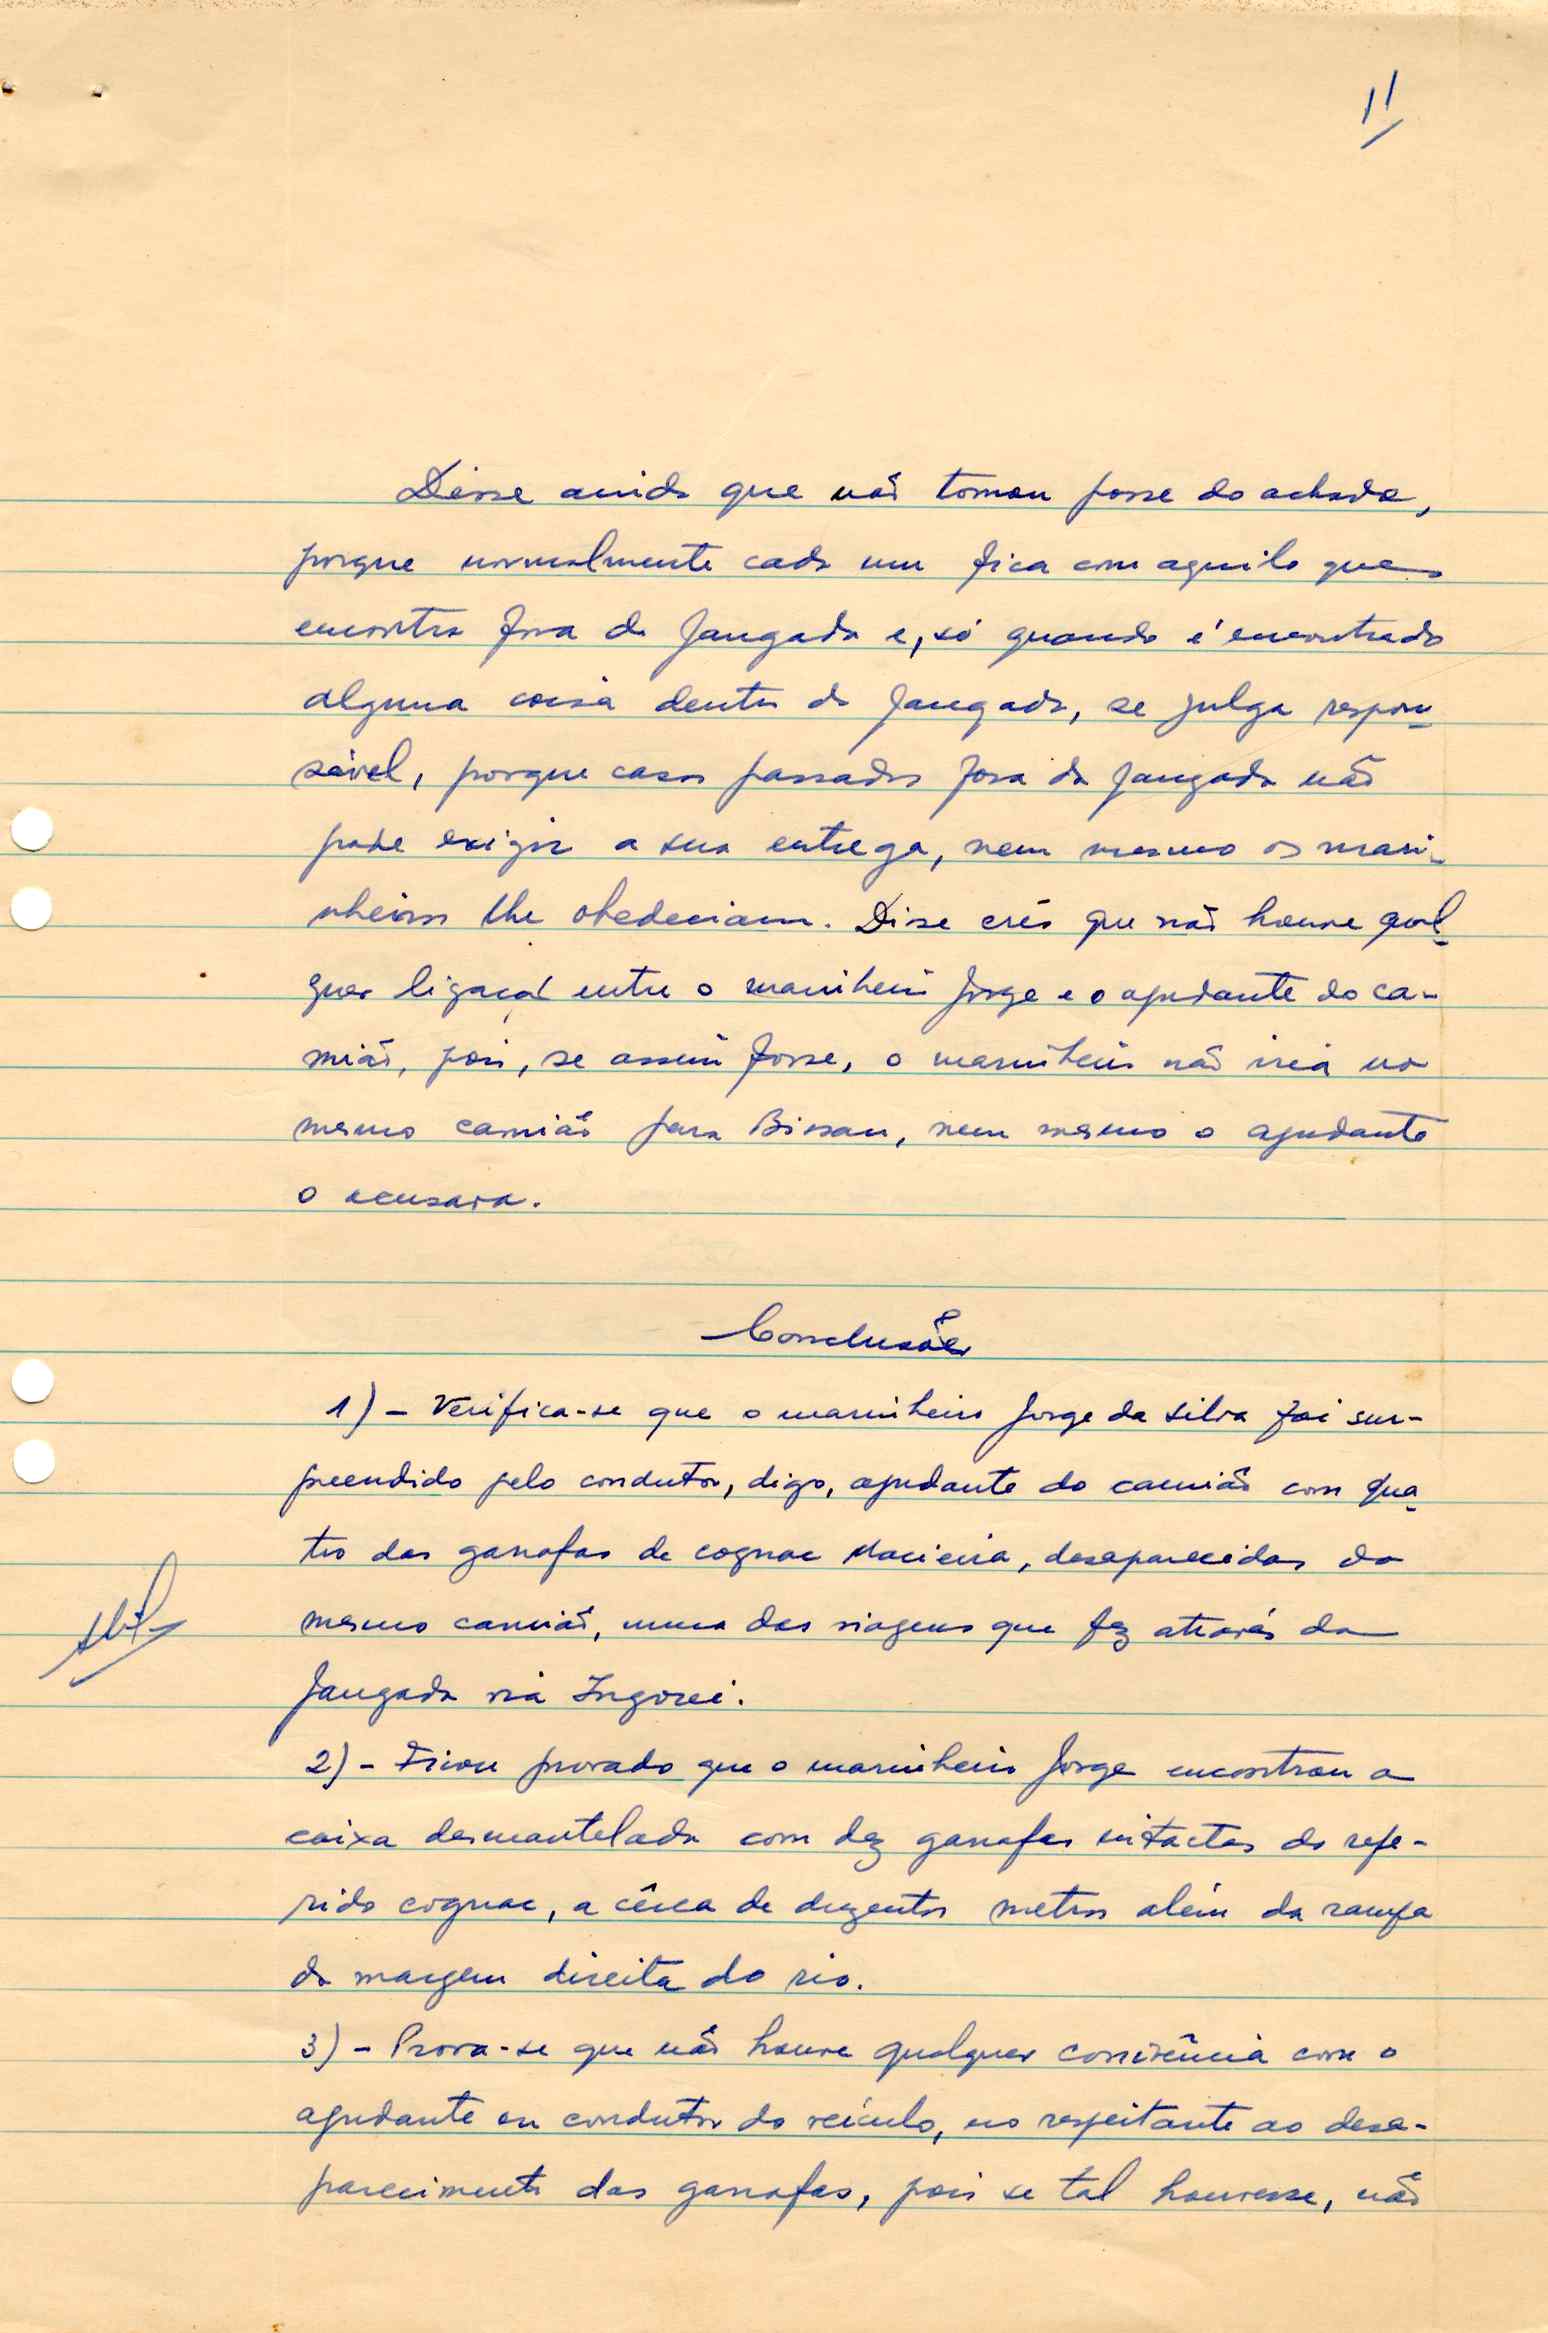 11
Disse ainda que não tomou posse do achado,
porque normalmente cada um fica com aquilo que
encontra fora da Jangada e, só quando é encontrado
alguma coisa dentro da Jangada, se julga respon-
sável, porque casos passados fora da Jangada não
pode exigir a sua entrega, nem mesmo os mari-
nheiros lhe obedeciam. Disse crêr que não houve qual-
quer ligação entre o marinheiro Jorge e o ajudante do ca-
mião, pois, se assim fosse, o marinheiro não iria no
mesmo camião para Bissau, nem mesmo o ajudante
o acusava.
Conclusões
1) - Verifica-se que o marinheiro Jorge da Silva foi sur-
preendido pelo condutor, digo, ajudante do camião com qua-
tro das garrafas de cognac Macieira, desaparecidas do
mesmo camião, numa das viagens que fez através da
Jangada via Ingorei.
2) - Ficou provado que o marinheiro Jorge encontrou a
caixa desmantelada com dez garrafas intactas do refe-
rido cognac, a cêrca de duzentos metros além da rampa
da margem direita do rio.
3) - Prova-se que não houve qualquer conivência com o
ajudante ou condutor do veículo, no respeitante ao desa-
parecimento das garrafas, pois se tal houvesse, não